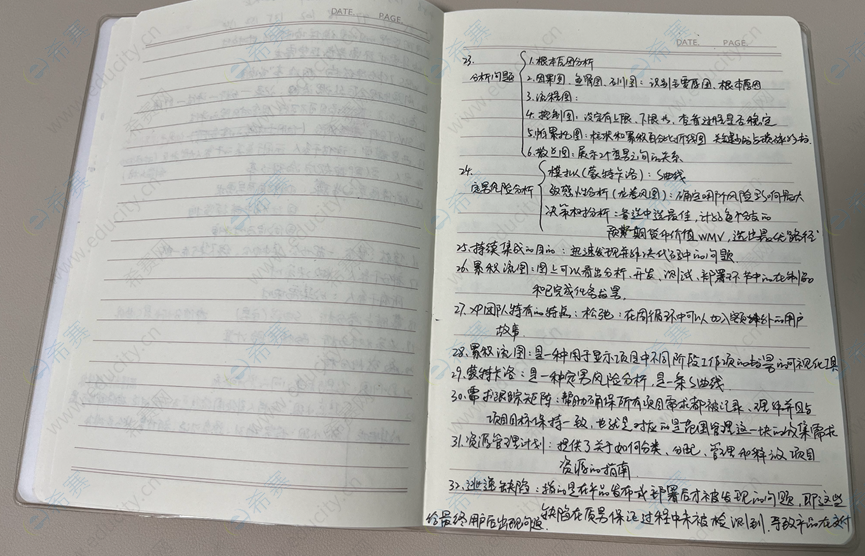 DATE PAGE
DATE PAGE
23. 分析问题
1.根本原因分析
2.因果图、鱼骨图、石川图：识别主要原因、根本原因
3.流程图：
4.控制图：设定有上限、下限，查看过程是否稳定
5.帕累托图：柱状和累积百分比折线图
6.散点图：展示2个变量之间的关系
24. 定量风险分析
模拟(蒙特卡洛)：S曲线
敏感性分析(龙卷风图)：确定哪个风险影响最大
决策树分析：备选中选最佳，计算每个分支的
预期货币价值WMV，选出最优路径
25.持续集成的目的：快速发现并解决代码中的问题
26.累积流图：图上可以看出分析、开发、测试、部署环节中的在制品
和已完成任务数量.
27.XP团队特有的特点：松弛：在周循环中可以加入额外的用户
故事
28.累积流图：是一种用于显示项目中不同阶段工作项的数量的可视化工具
29.蒙特卡洛：是一种定量风险分析，是一条S曲线
30.需求跟踪矩阵：帮助确保所有项目需求都被记录、理解并且与
项目目标保持一致，也就是对应的是范围管理这一块的收集需求
31.资源管理计划：提供了关于如何分类、分配、管理和释放项目
资源的指南
32.逃逸缺陷：指的是在产品发布或部署后才被发现的问题，即这些
缺陷在质量保证过程中未被检测到，导致产品在交付
给最终用户后出现问题.
希赛
www.educity.cn